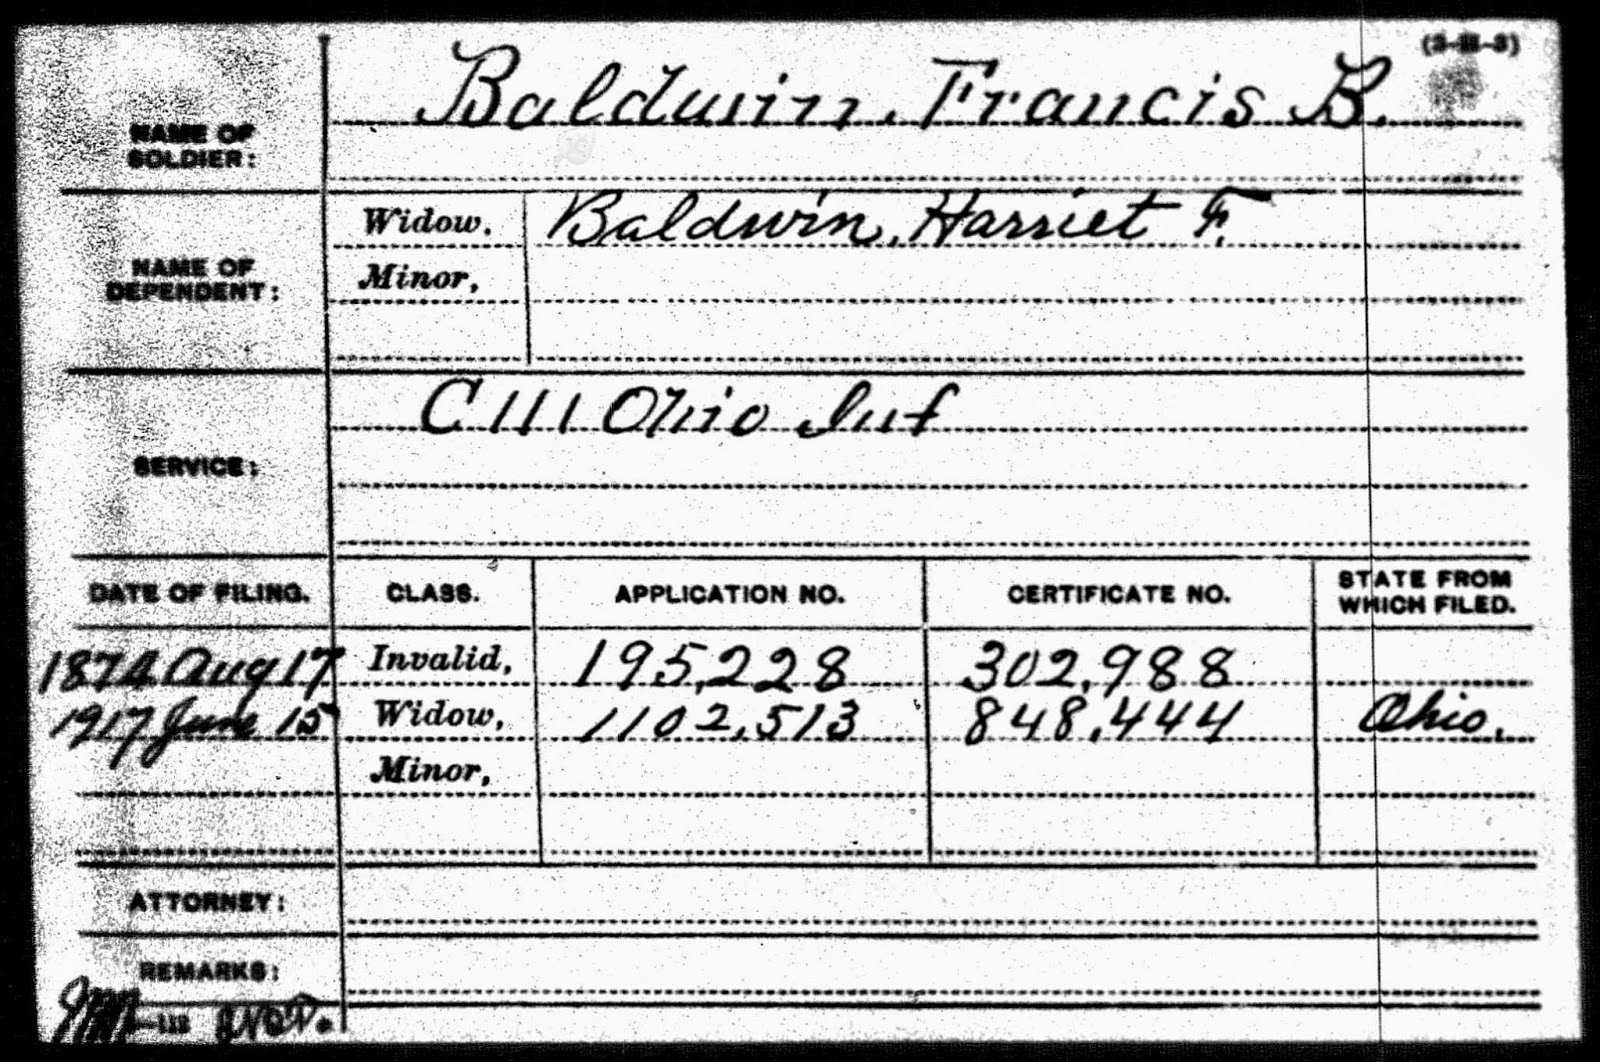 Baldwin, Francis B.
NAME OF
SOLDIER:
Widow, Baldwin, Harriet F.
NAME OF
DEPENDENT:
Minor,
C 111 Ohio Inf
SERVICE:
DATE OF FILING. CLASS. APPLICATION NO. CERTIFICATE NO. STATE FROM WHICH FILED.
1874 Aug 17 Invalid, 195,228 302,988
1917 June 15 Widow, 1102,513 848,444 Ohio.
Minor,
ATTORNEY:
REMARKS: